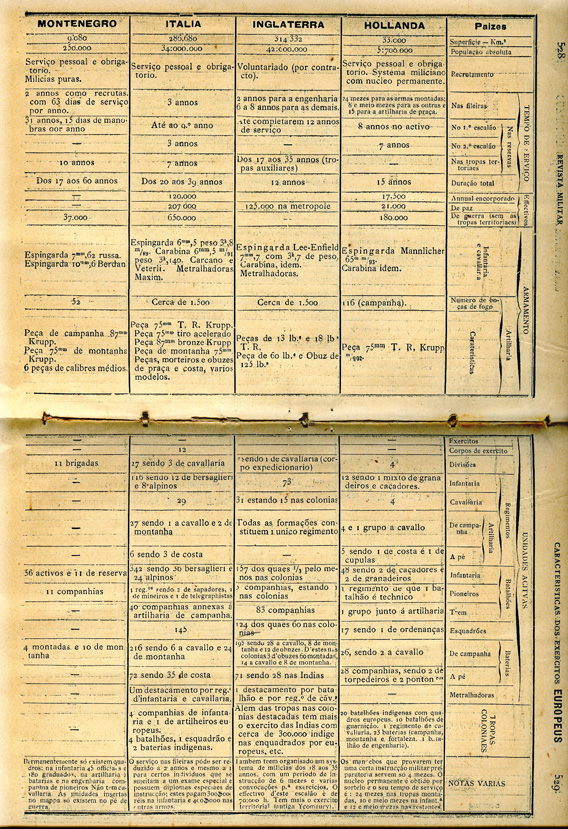 MONTENEGRO ITALIA INGLATERRA HOLLANDA Paizes
9:080 286,680 314 332 33.000 Superficie — Km.²
250.000 34:000.000 42:000.000 5:700.000 População absoluta
Serviço pessoal e obriga-
torio.
Milicias puras.
Serviço pessoal e obriga-
torio.
Voluntariado (por contra-
cto).
Serviço pessoal e obriga-
torio. Systema miliciano
com nucleo permanente.
Recrutamento
2 annos como recrutas,
com 63 dias de serviço
por anno.
3 annos
2 annos para a engenharia
6 a 8 annos para as demais.
24 mezes para as armas montadas;
8 e meio mezes para as outras e
15 para a artilharia de praça.
Nas fileiras
31 annos, 15 dias de mano-
bras por anno.
Até ao 9.º anno
Até completarem 12 annos
de serviço
8 annos no activo
No 1.º escalão
— 3 annos — 7 annos No 2.º escalão
10 annos 7 annos
Dos 17 aos 35 annos (tro-
pas auxiliares)
—
Nas tropas ter-
ritoriaes
Dos 17 aos 60 annos Dos 20 aos 39 annos 12 annos 15 annos Duração total
— 120.000 — 17.500 Annual encorporado
— 207 000 125.000 na metropole 21.000 De paz
37.000 650.000 — 180.000 De guerra (sem as
tropas territoriaes)
Nas reservas
TEMPO DE SERVIÇO
Effectivos
Espingarda 7ᵐᵐ,62 russa.
Espingarda 10ᵐᵐ,6 Berdan
Espingarda 6ᵐᵐ,5 peso 3ᵏ,8
m/91. Carabina 6ᵐᵐ 5 m/91
peso 3ᵏ,140. Carcano e
Veterli. Metralhadoras
Maxim.
Espingarda Lee-Enfield
7ᵐᵐ,7 com 3ᵏ,7 de peso,
Carabina, idem.
Metralhadoras.
Espingarda Mannlicher
65ᵐᵐ
Carabina idem.
Infantaria
e
cavallaria
52 Cerca de 1.500 Cerca de 1.500 116 (campanha). Numero de bo-
cas de fogo
Peça de campanha 87ᵐᵐ
Krupp.
Peça 75ᵐᵐ de montanhe
Krupp.
6 peças de calibres médios.
Peça 75ᵐᵐ T. R. Krupp.
Peça 75ᵐᵐ tiro acelerado
Peça 87ᵐᵐ bronze Krupp
Peça de montanha 75ᵐᵐ
Peças, morteiros e obuzes
de praça e costa, varios
modelos.
Peças de 13 lb.ˢ e 18 lb.ˢ
T. R.
Peça de 60 lb.ˢ e Obuz de
125 lb.ˢ
Peça 75ᵐᵐ T. R, Krupp
Caracteristicas
Artilharia
ARMAMENTO
528
REVISTA MILITAR
— — — — Exercitos
— 12 — — Corpos de exercito
11 brigadas 27 sendo 3 de cavallaria
sendo 1 de cavallaria (cor-
po expedicionario)
4 Divisões
—
116 sendo 12 de bersaglieri
e 8 alpinos
73
12 sendo 1 mixto de grana
deiros e caçadores.
Infantaria
— 29 31 estando 15 nas colonias 4 Cavallaria
—
27 sendo 1 a cavallo e 2 de
montanha
Todas as formações con-
stituem 1 unico regimento
4 e 1 grupo a cavallo
De campa-
nha
— 6 sendo 3 de costa —
5 sendo 1 de costa é 1 de
cupulas
A pé
Artilharia
Regimentos
56 activos e 11 de reserva
342 sendo 36 bersaglieri e
24 alpinos
157 dos quaes 1/3 pelo me-
nos nas colonias
48 sendo 2 de caçadores e
2 de granadeiros
Infantaria
11 companhias
1 reg.ᵗᵒ sendo 2 de sapadores, 1
de mineiros e 1 de telegraphistas
companhias, estando 1
nas colonias
1 regimento de que 1 ba-
talhão é technico
Pioneiros
—
40 companhias annexas á
artilharia de campanha.
83 companhias 1 grupo junto á artilharia Trem
Batalhões
— 145
124 dos quaes 60 nas colo-
nias
17 sendo 1 de ordenanças Esquadrões
4 montadas e 10 de mon
tanha
216 sendo 6 a cavallo e 24
de montanha
195 sendo 28 a cavallo, 8 de mon-
tanha e 12 de obuzes. D'estas nas
colonias 3 d'obuzes 60 montadas,
14 a cavallo e 8 de montanha.
26, sendo 2 a cavallo
De campanha
— 72 sendo 35 de costa 71 sendo 28 nas Indias
28 companhias, sendo 2 de
torpedeiros e 2 ponton
A pé
Baterias
—
Um destacamento por reg.ᵗᵒ
d'infantaria e cavallaria.
1 destacamento por bata
lhão e por reg.ᵗᵒ de cav.ª
— Metralhadoras
UNIDADES ACTIVAS
—
4 companhias de infanta-
ria e 1 de artilheiros eu-
ropeus.
4 batalhões, 1 esquadrão e
2 baterias indigenas.
Alem das tropas nas colo-
nias destacadas tem mais
o exercito das Indias com
cerca de 300.000 indige-
nas enquadrados por eu-
ropeus, etc.
20 batalhões indigenas com qua-
dros europeus. 10 batalhões de
guarnição, 1 regimento de ca-
vallaria, 23 baterias (campanha,
montanha e fortaleza. 1 bata-
lhão de engenharia).
TROPAS
COLONIAES
Permanentemente só existem qua-
dros: na infantaria 45 officiaes e
180 graduados, na artilharia 5
baterias e na engenharia compa-
nhias de pioneiros Não tem ca-
vallaria. As unidades insertas
no mappa só existem no pé de
guerra.
O serviço nas fileiras póde ser re-
duzido a 2 annos e mesmo a 1
para certos individuos que se
sujeitam a um exame especial e
possuem diplomas especiaes de
instrucção; estes pagam
réis na infantaria e nas
outras armas.
Tambem tem organisado um sys-
tema de milicias dos 18 aos 35
annos, com um periodo de ins-
trucção de 6 mezes e varias
convocações p.ª exercicios. O
effectivo d'este escalão é de
h. Tem mais o exercito
territorial (antiga Yeomanry).
Os mancebos que provarem ter
uma certa instrucção militar pre-
paratoria servem só 4 mezes. O
nucleo permanente é obtido por
sorteio e o seu tempo de serviço
é: 24 mezes nas tropas monta-
das, 10 e meio mezes na infant.ª
e 12 e meio mezes nas restantes
NOTAS VARIAS
CARACTERISTICAS DOS EXERCITOS EUROPEUS
529